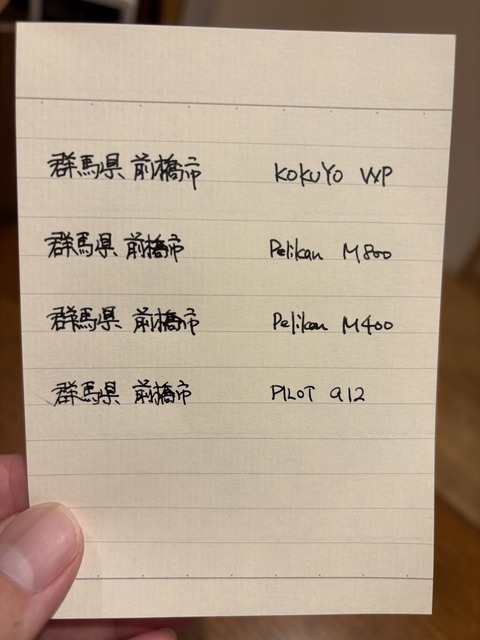 群馬県 前橋市 KOKUYO WP
群馬県 前橋市 Pelikan M800
群馬県 前橋市 Pelikan M400
群馬県 前橋市 PILOT 912